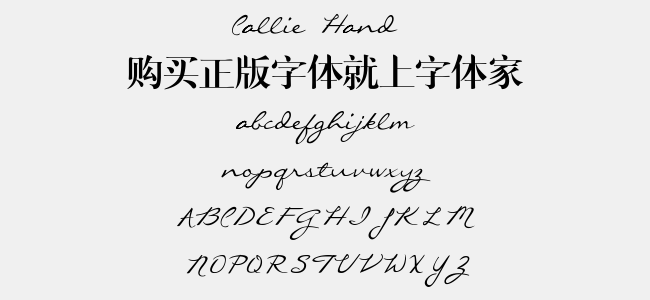 Callie Hand
购买正版字体就上字体家
abcdefghijklm
nopqrstuvwxyz
ABCDEFGHIJKLM
NOPQRSTUVWXYZ